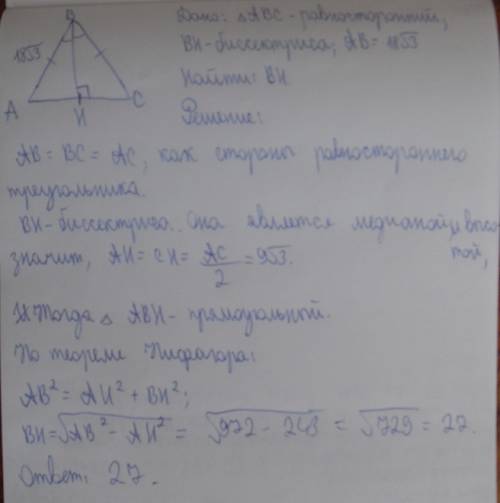 B
18√3
A
H
C
Дано: △ ABC - равносторонний,
BH - биссектриса, AB = 18√3
Найти: BH
Решение:
AB = BC = AC, как стороны равностороннего
треугольника.
BH - биссектриса. Она является медианой и высо
той,
значит, AH = CH = AC/2 = 9√3.
Тогда △ ABH - прямоугольный.
По теореме Пифагора:
AB² = AH² + BH²;
BH = √AB² - AH² = √972 - 243 = √729 = 27.
Ответ: 27.